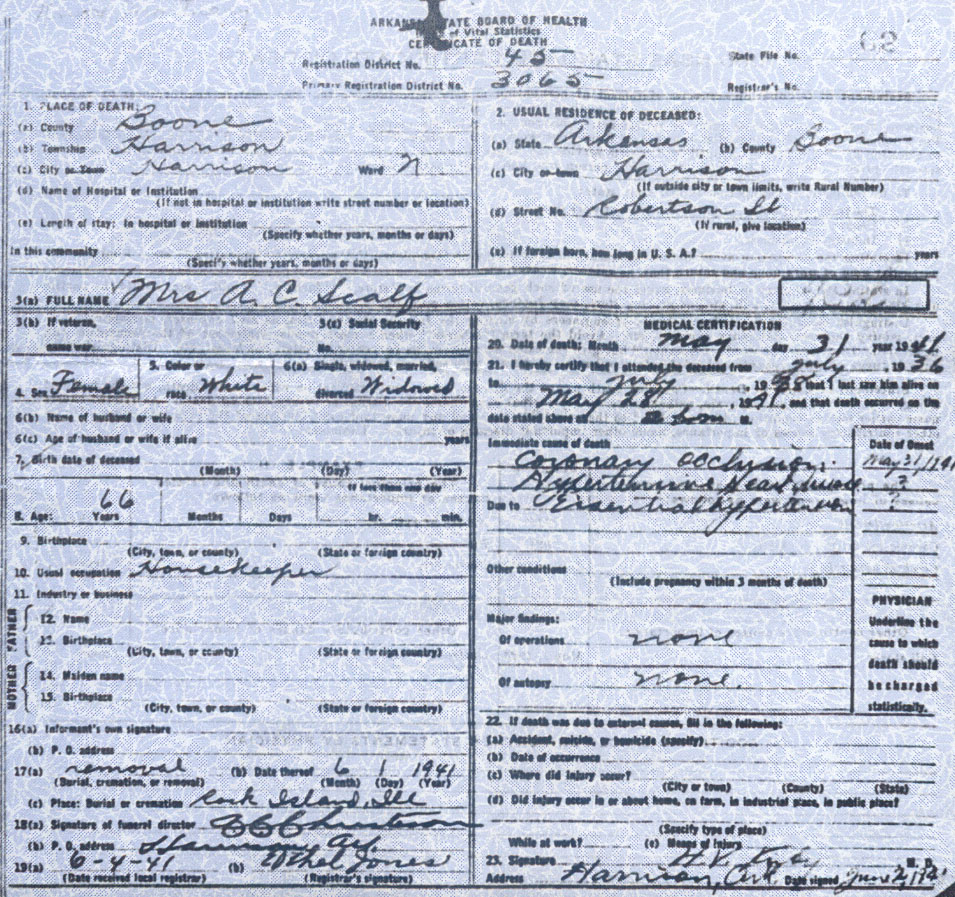 ARKANSAS STATE BOARD OF HEALTH
of Vital Statistics
CERTIFICATE OF DEATH
Registration District No. 45
State File No.
Primary Registration District No. 3065
Registrar's No.
1. PLACE OF DEATH:
(a) County Boone
(b) Township Harrison
(c) City or Town Harrison Ward N
(d) Name of Hospital or Institution
(If not in hospital or institution write street number or location)
(e) Length of stay: In hospital or institution
(Specify whether years, months or days)
In this community
(Specify whether years, months or days)
2. USUAL RESIDENCE OF DECEASED:
(a) State Arkansas (b) County Boone
(c) City or town Harrison
(If outside city or town limits, write Rural Number)
(d) Street No. Robertson St
(If rural, give location)
(e) If foreign born, how long in U. S. A.? years
3(a) FULL NAME Mrs A. C. Scalf
3(b) If veteran,
name war
3(c) Social Security
No.
4. Sex Female
5. Color or
race White
6(a) Single, widowed, married,
divorced Widowed
6(b) Name of husband or wife
6(c) Age of husband or wife if alive years
7. Birth date of deceased
(Month) (Day) (Year)
If less than one day
8. Age: 66
Years Months Days hr. min.
9. Birthplace
(City, town, or county) (State or foreign country)
10. Usual occupation Housekeeper
11. Industry or business
FATHER
12. Name
13. Birthplace
(City, town, or county) (State or foreign country)
MOTHER
14. Maiden name
15. Birthplace
(City, town, or county) (State or foreign country)
16(a) Informant's own signature
(b) P. O. address
17(a) removal (b) Date thereof 6 1 1941
(Burial, cremation, or removal) (Month) (Day) (Year)
(c) Place: Burial or cremation Rock Island, Ill
18(a) Signature of funeral director
(b) P. O. address Harrison Ark
19(a) 6-4-41 (b) Ethel Jones
(Date received local registrar) (Registrar's signature)
MEDICAL CERTIFICATION
20. Date of death: Month May day 31 year 1941
21. I hereby certify that I attended the deceased from July, 1936
to July, 1938 that I last saw him alive on
May 28, 1941, and that death occurred on the
date stated above at m.
Immediate cause of death
Date of Onset
Coronary occlusion; May 31/1941
Hypertensive Heart disease ?
Due to Essential hypertension ?
Other conditions
(Include pregnancy within 3 months of death)
Major findings:
Of operations none
Of autopsy none.
PHYSICIAN
Underline the
cause to which
death should
be charged
statistically.
22. If death was due to external causes, fill in the following:
(a) Accident, suicide, or homicide (specify)
(b) Date of occurrence
(c) Where did injury occur?
(City or town) (County) (State)
(d) Did injury occur in or about home, on farm, in industrial place, in public place?
(Specify type of place)
While at work? (e) Means of injury
23. Signature H. V. M. D.
Address Harrison, Ark. Date signed June 2,